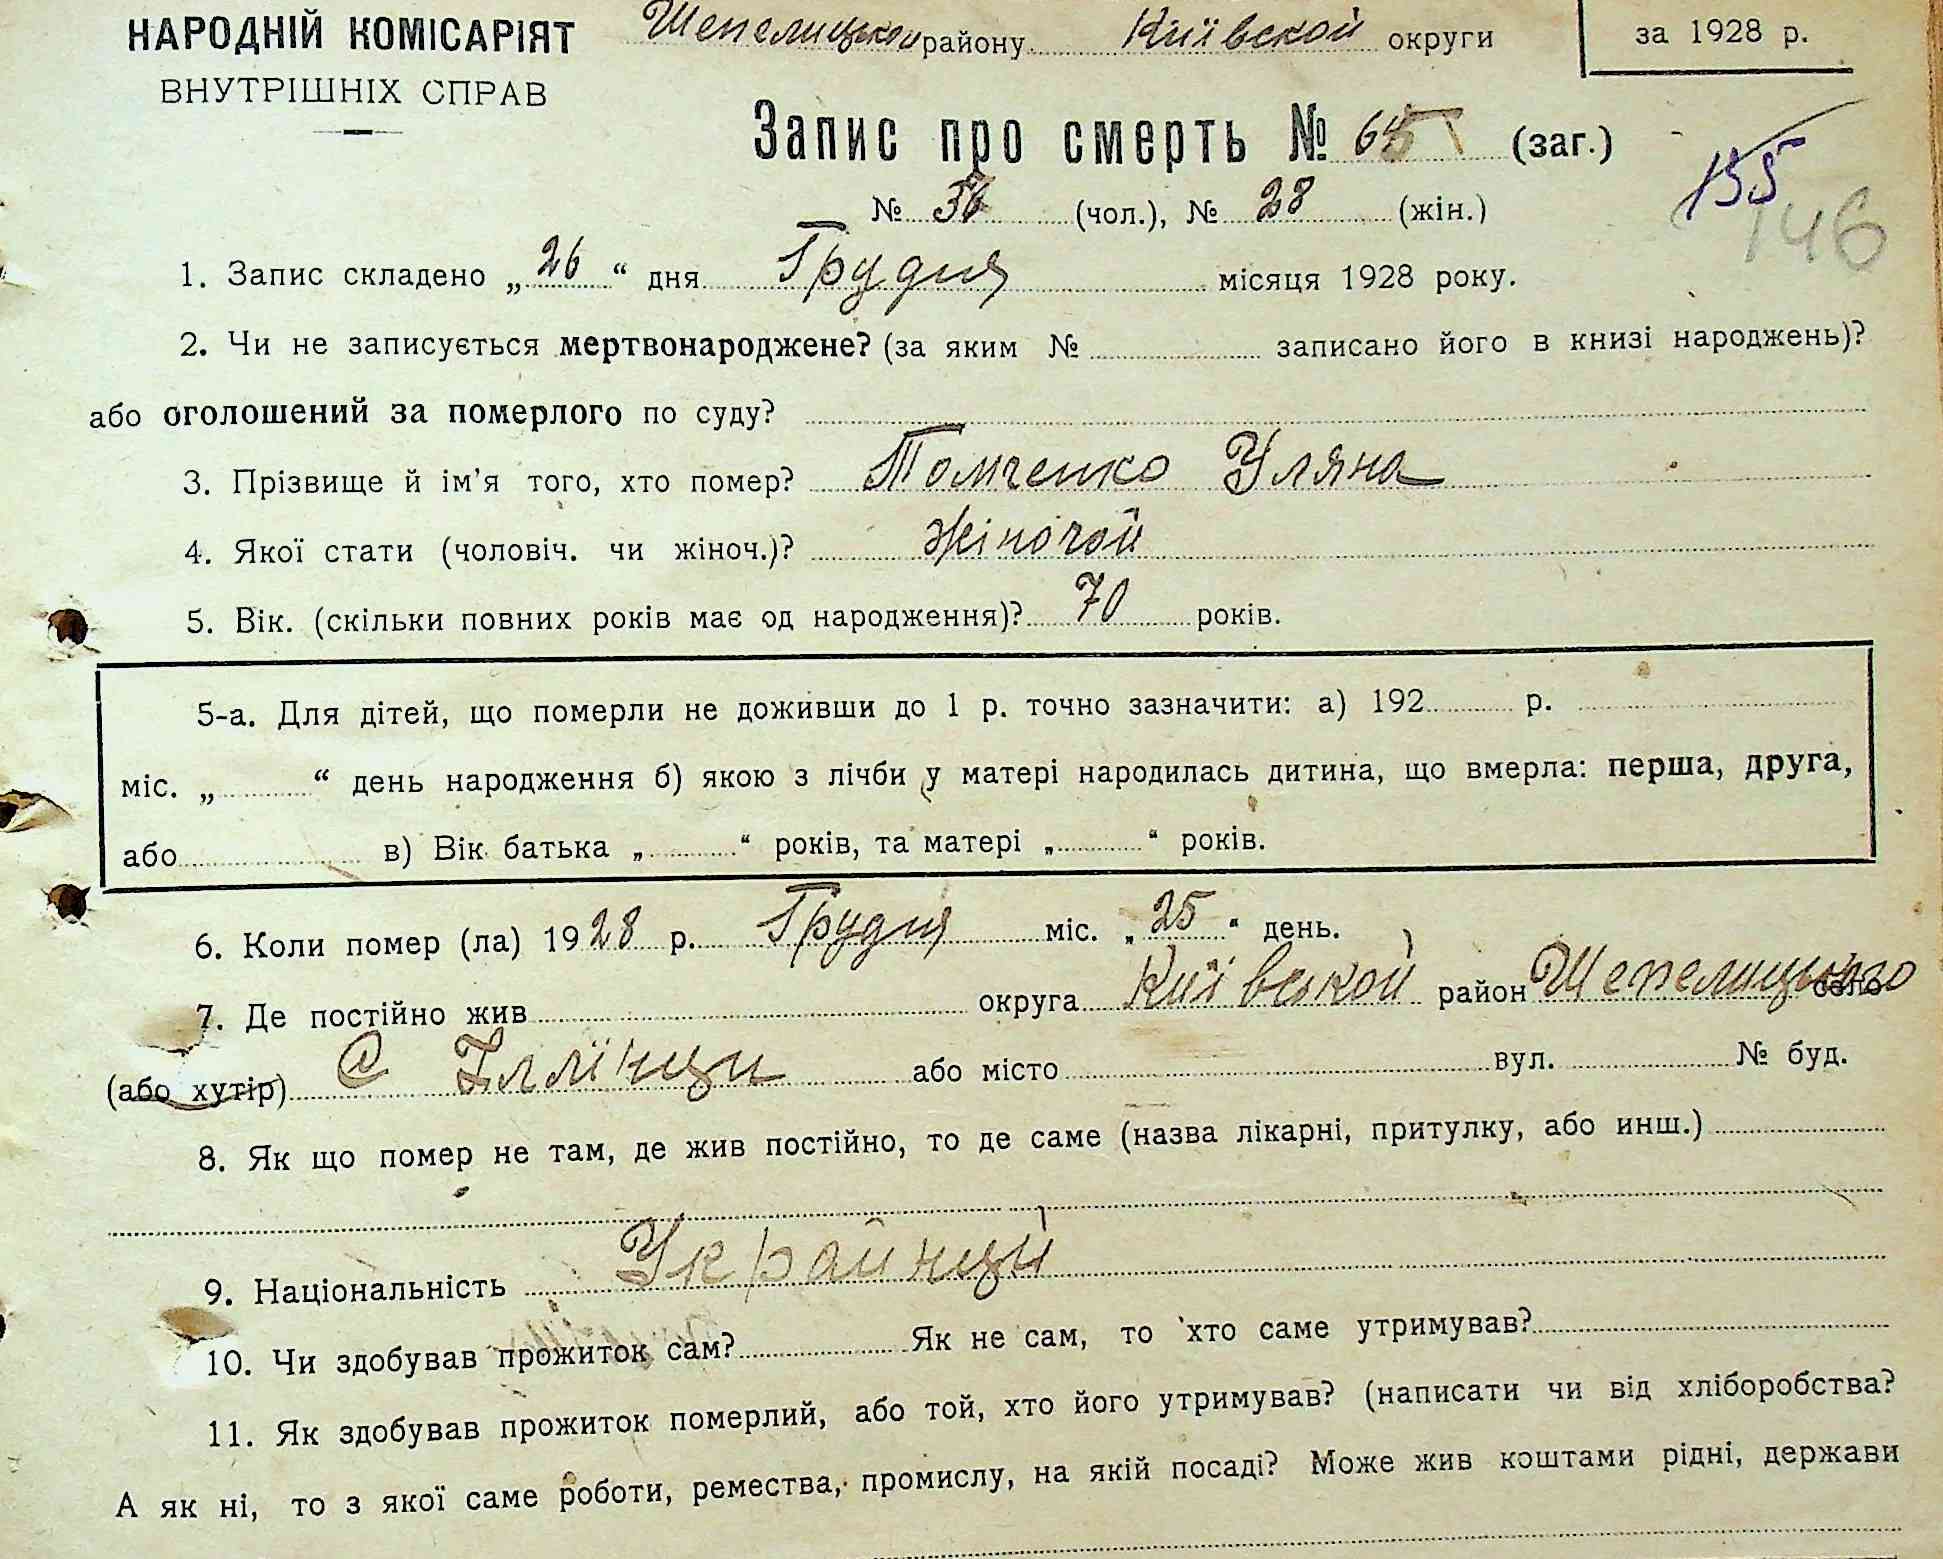 НАРОДНІЙ КОМІСАРІЯТ
ВНУТРІШНІХ СПРАВ
Шепелицького району Київской округи
за 1928 р.
Запис про смерть № (заг.)
№ (чол.), № 28 (жін.)
155
146
1. Запис складено „26“ дня Грудня місяця 1928 року.
2. Чи не записується мертвонароджене? (за яким № записано його в книзі народжень)?
або оголошений за померлого по суду?
3. Прізвище й ім'я того, хто помер? Томченко Уляна
4. Якої стати (чоловіч. чи жіноч.)? Жіночой
5. Вік. (скільки повних років має од народження)? 70 років.
5-а. Для дітей, що померли не доживши до 1 р. точно зазначити: а) 192 р.
міс. „ “ день народження б) якою з лічби у матері народилась дитина, що вмерла: перша, друга,
або в) Вік батька „ “ років, та матері „ “ років.
6. Коли помер (ла) 1928 р. Грудня міс. „25“ день.
7. Де постійно жив округа Київськой район Шепелицького село
(або хутір) С Іллінци або місто вул. № буд.
8. Як що помер не там, де жив постійно, то де саме (назва лікарні, притулку, або инш.)
9. Національність Украйнций
10. Чи здобував прожиток сам? Як не сам, то хто саме утримував?
11. Як здобував прожиток померлий, або той, хто його утримував? (написати чи від хліборобства?
А як ні, то з якої саме роботи, ремества, промислу, на якій посаді? Може жив коштами рідні, держави